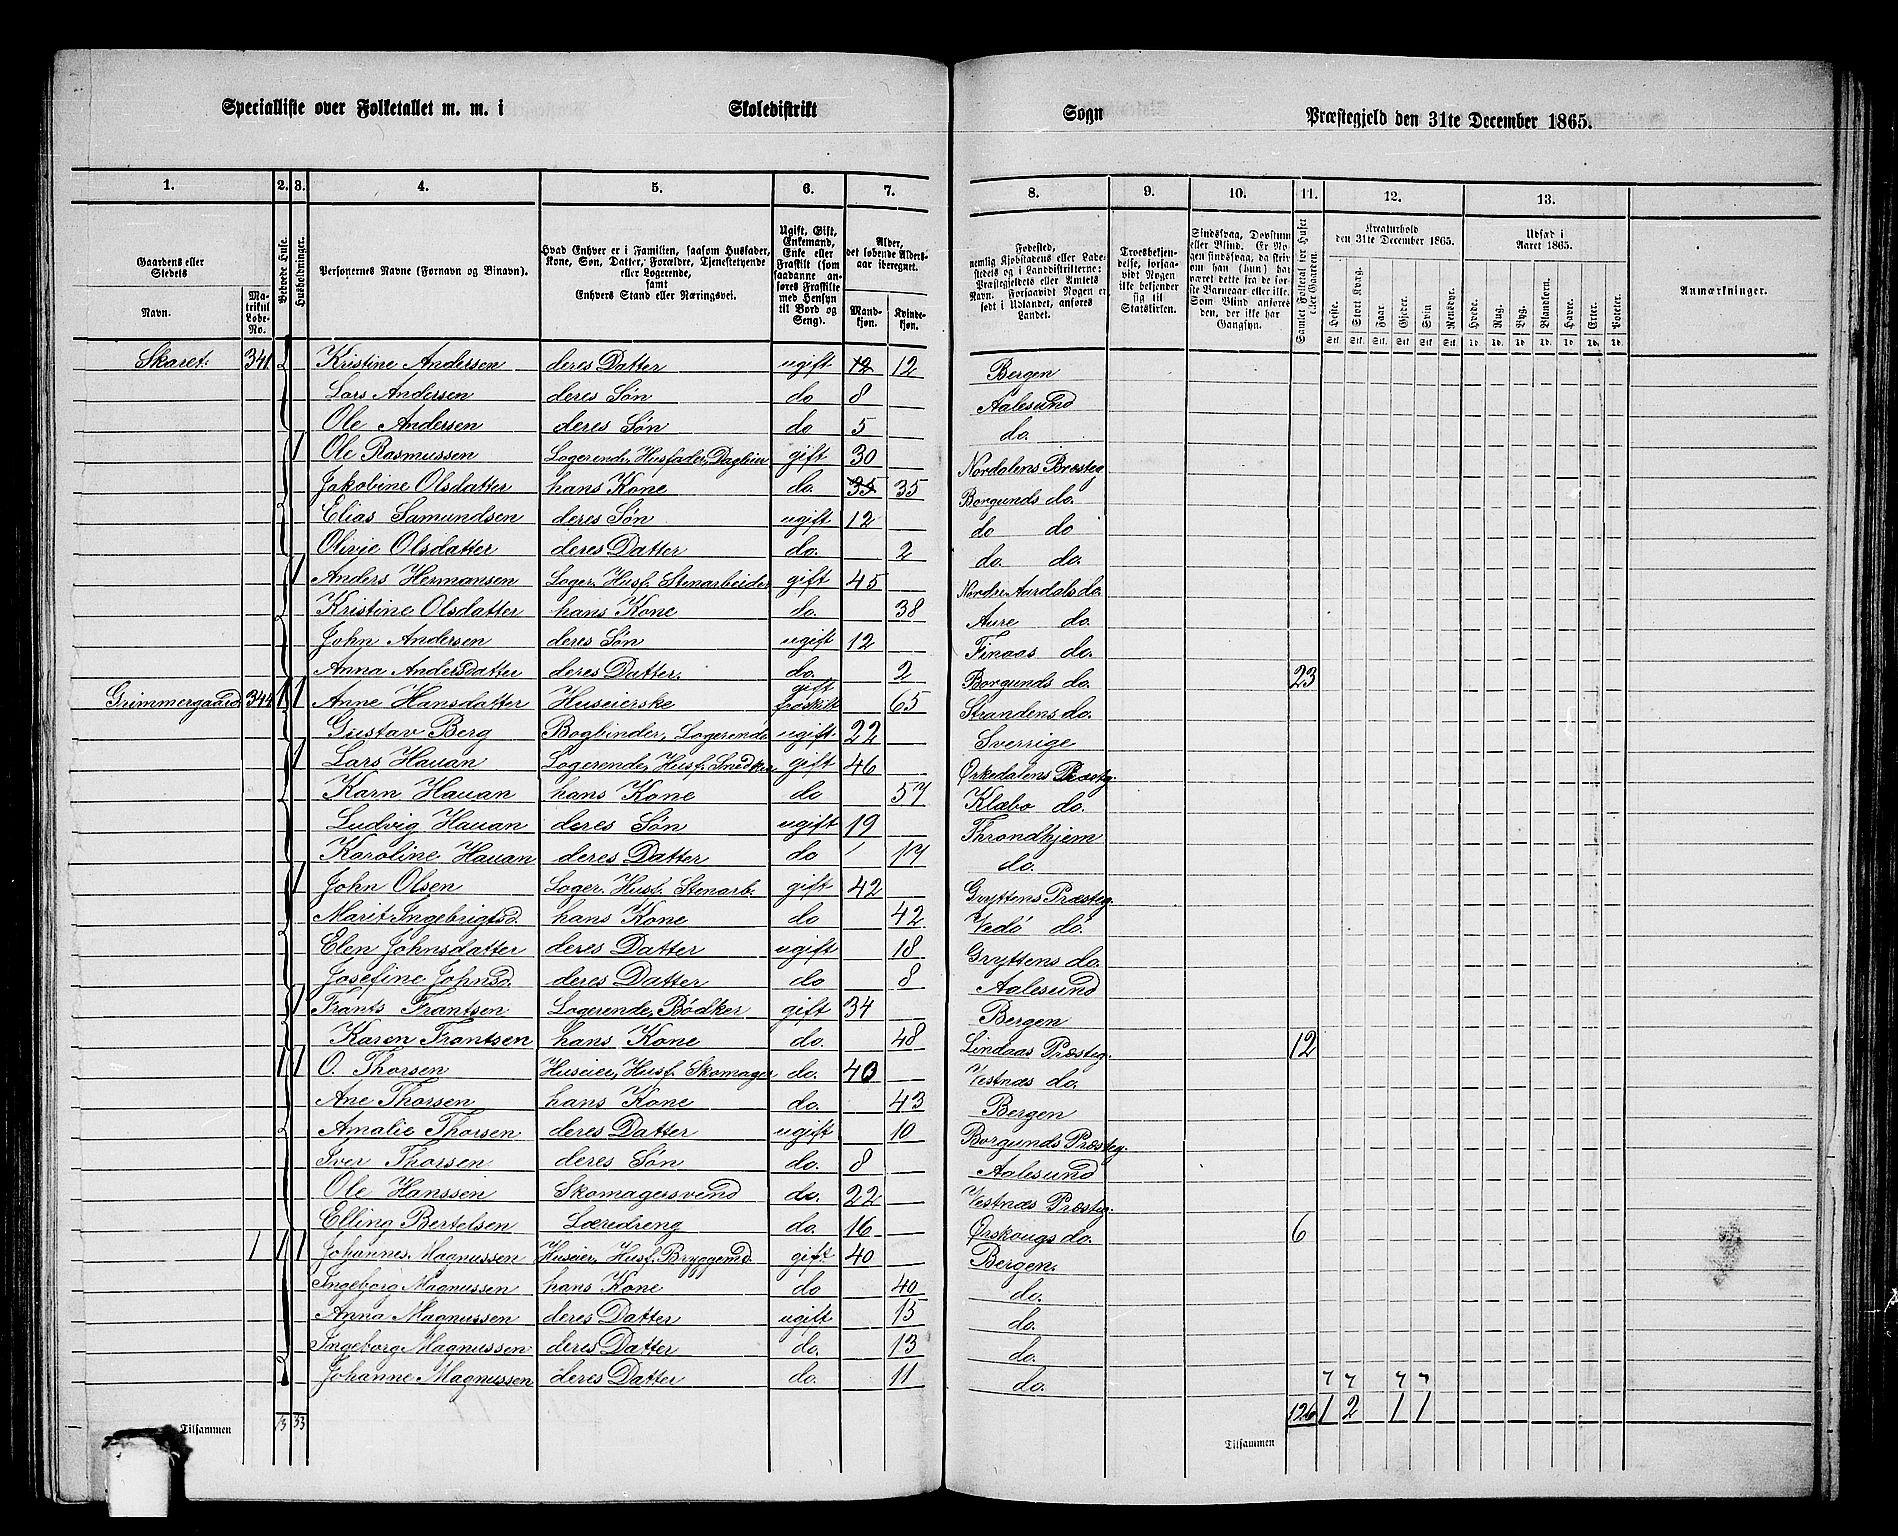 Specialliste over Folketallet m. m. i Skoledistrikt Sogn Præstegjeld den 31te December 1865.
1. 2. 3. 4. 5. 6. 7. 8. 9. 10. 11. 12. 13.
Gaardens eller Stedets
Navn.
Matrikul Løbe-No.
Beboede Huse.
Husholdninger.
Personernes Navne (Fornavn og Binavn).
Hvad Enhver er i Familien, saasom Husfader, Kone, Søn, Datter, Forældre, Tjenestetyende eller Logerende, samt Enhvers Stand eller Næringsvei.
Ugift, Gift, Enkemand, Enke eller Fraskilt (som saadanne anføres Fraskilte med Hensyn til Bord og Seng).
Alder, det løbende Aldersaar iberegnet.
Mandkjøn.
Kvindekjøn.
Fødested, nemlig Kjøbstadens eller Ladestedets og i Landdistrikterne: Præstegjeldets eller Amtets Navn. Forsaavidt Nogen er født i Udlandet, anføres Landet.
Troesbekjendelse, forsaavidt Nogen ikke bekjender sig til Statskirken.
Sindssvag, Døvstum eller Blind. Er Nogen sindssvag, da skrives om han (hun) har været dette fra de første Barneaar eller ikke. Som Blind anføres den, der ikke har Gangsyn.
Samlet Folketal for Huset eller Gaarden.
Kreaturhold den 31te December 1865.
Udsæd i Aaret 1865.
Anmærkninger.
Heste. Stort Kvæg. Faar. Gjeder. Svin Rensdyr. Hvede. Rug. Byg. Blandkorn. Havre. Erter. Poteter.
Stk. Stk. Stk. Stk. Stk. Stk. Td. Td. Td. Td. Td. Td. Td.
Skaret. 341 Kristine Andersen deres Datter ugift 12 12 Bergen
Lars Andersen deres Søn do 8 Aalesund
Ole Andersen deres Søn do 5 do.
1 Ole Rasmussen Logerende, Husfader, Dagleier gift 30 Nordalens Præsteg
Jakobine Olsdatter hans Kone do. 35 35 Borgunds do.
Elias Samundsen deres Søn ugift 12 do do
Olivie Olsdatter deres Datter do. 2 do. do.
1 Anders Hermansen Loger. Husf. Stenarbeider gift 45 Nordre Aardals do.
Kristine Olsdatter hans Kone do. 38 Aure do.
John Andersen deres Søn ugift 12 Finaas do.
Anna Andersdatter deres Datter. do. 2 Borgunds do. 23
Grimmergaard 344 1 1 Anne Hansdatter Huseierske gift fraskilt 65 Strandens do.
Gustav Berg Bogbinder, Logerende ugift 22 Sverrige
1 Lars Hauan Logerende, Husf. Snedker gift 46 Ørkedalens Præsteg.
Karn Hauan hans Kone do 57 Klæbo do.
Ludvig Hauan deres Søn ugift 19 Throndhjem
Karoline Hauan deres Datter do 17 do.
1 John Olsen Loger. Husf. Stenarb. gift 42 Gryttens Præsteg.
Marit Ingebrigtsd. hans Kone do 42 Vedø do.
Elen Johnsdatter deres Datter ugift 18 Gryttens do.
Josefine Johnsd. deres Datter do 8 Aalesund
1 Frants Frantsen Logerende, Bødker gift 34 Bergen
Karen Frantsen hans Kone do. 48 Lindaas Præsteg. 12
1 1 O. Thorsen Huseier, Husf. Skomager do. 40 Vestnæs do.
Ane Thorsen hans Kone do. 43 Bergen
Amalie Thorsen deres Datter ugift 10 Borgunds Præsteg.
Iver Thorsen deres Søn do. 8 Aalesund
Ole Hanssen Skomagersvend do. 22 Vestnæs Præsteg.
Elling Bertelsen Læredreng do. 16 Ørskougs do. 6
1 1 1 Johannes Magnussen Huseier, Husf. Bryggemd. gift 40 Bergen.
Ingeborg Magnussen hans Kone do 40 do.
Anna Magnussen deres Datter ugift 15 do.
Ingeborg Magnussen deres Datter do. 13 do.
Johanne Magnussen deres Datter do. 11 do.
Tilsammen 13 33 Tilsammen 126 1 2 1 1